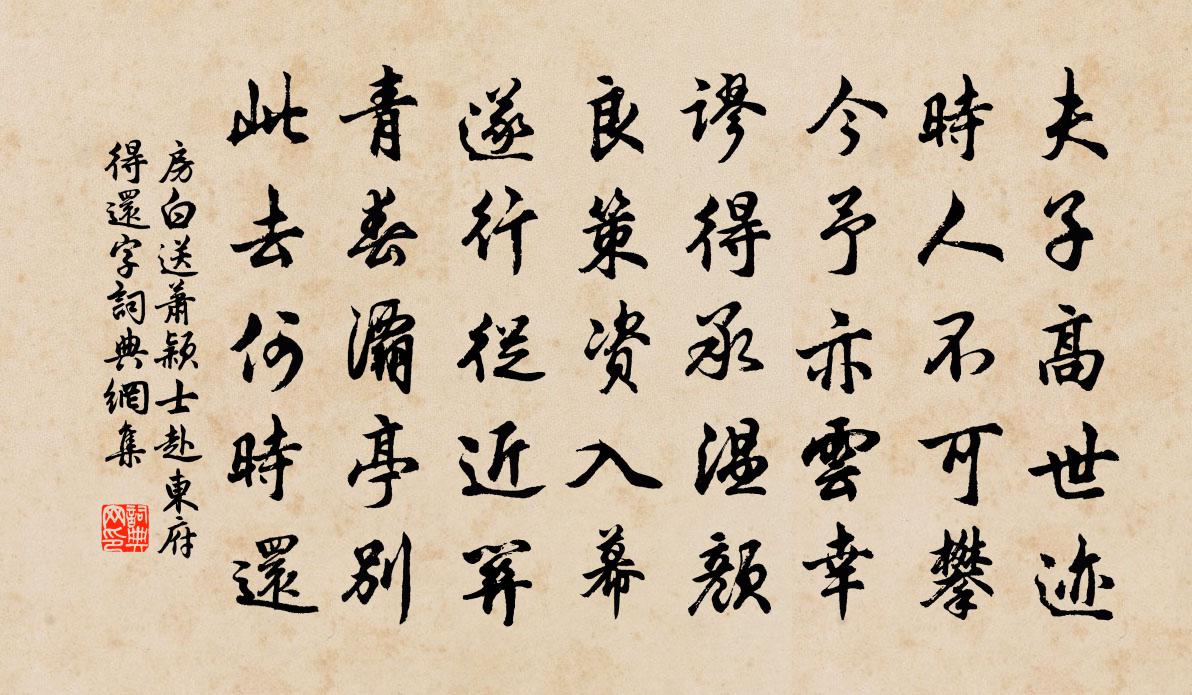 夫子高世迹
時人不可攀
今予亦雲幸
謬得承温顔
良策資入幕
遂行從近關
青春灞亭別
此去何時還
房白送蕭穎士赴東府
得還字詞典網集
詞典网印